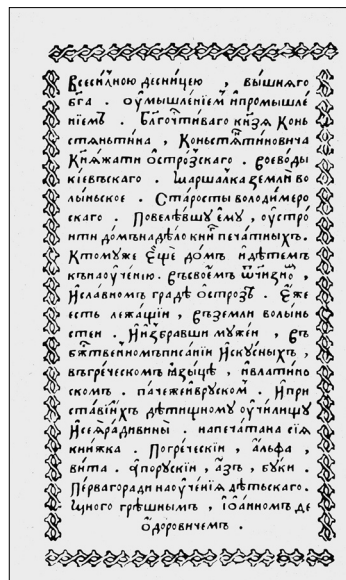 Всеси́лною десни́цею , вы́шняго
бг҃а . оу҆мышле́нїем и҆промышле́
нїемъ . Бл҃гочти́ваго кн҃зя Конь
стяньти́на , Коньстя҃ти́новича
Кня́жати о҆стро́зскаго . воево́ды
кїе́въскаго . Маршалка земли́ во
лы́ньское . Ста́росты володи́меро
скаго . Повеле́вшу є҆му̀ , оу҆стро́
ити до́мъ на дѣ́ло кни҃ печа́тныхъ .
К тому́же є҆щѐ до́мъ и҆ дѣ́темъ
къ нао҆уче́нию . въ свое́мъ ѿчи́знѡ҃ ,
И҆ сла́вномъ гра́де о҆стро́зѣ . є҆́же
есть лежа́щїи , въ земли́ волы́нь
стеи . И҆ и҆збра́вши муже́и , въ
бж҃твенномъ писа́нїи и҆ску́сныхъ ,
въ гре́ческомъ ꙗ҆зы́цѣ , и҆ влати́но
скомъ . па́че же и҆ вру́ском . И҆ при
ста́ви и҆́хъ дѣ́тищному оу҆чи́лищу
И҆ сеѧ̀ ра́ди вины̀ . напеча́тана сїѧ̀
кни́жка . По гре́чески , а҆́льфа ,
ви́та . а҆ по ру́скїи , а҆́зъ , бу́ки .
Пе́рваго ра́ди нао҆уче́нїя дѣ́тьскаго .
Мно́го грѣ́шнымъ , і҆оа́нномъ ѳе
ѻ҆́доровичемъ .